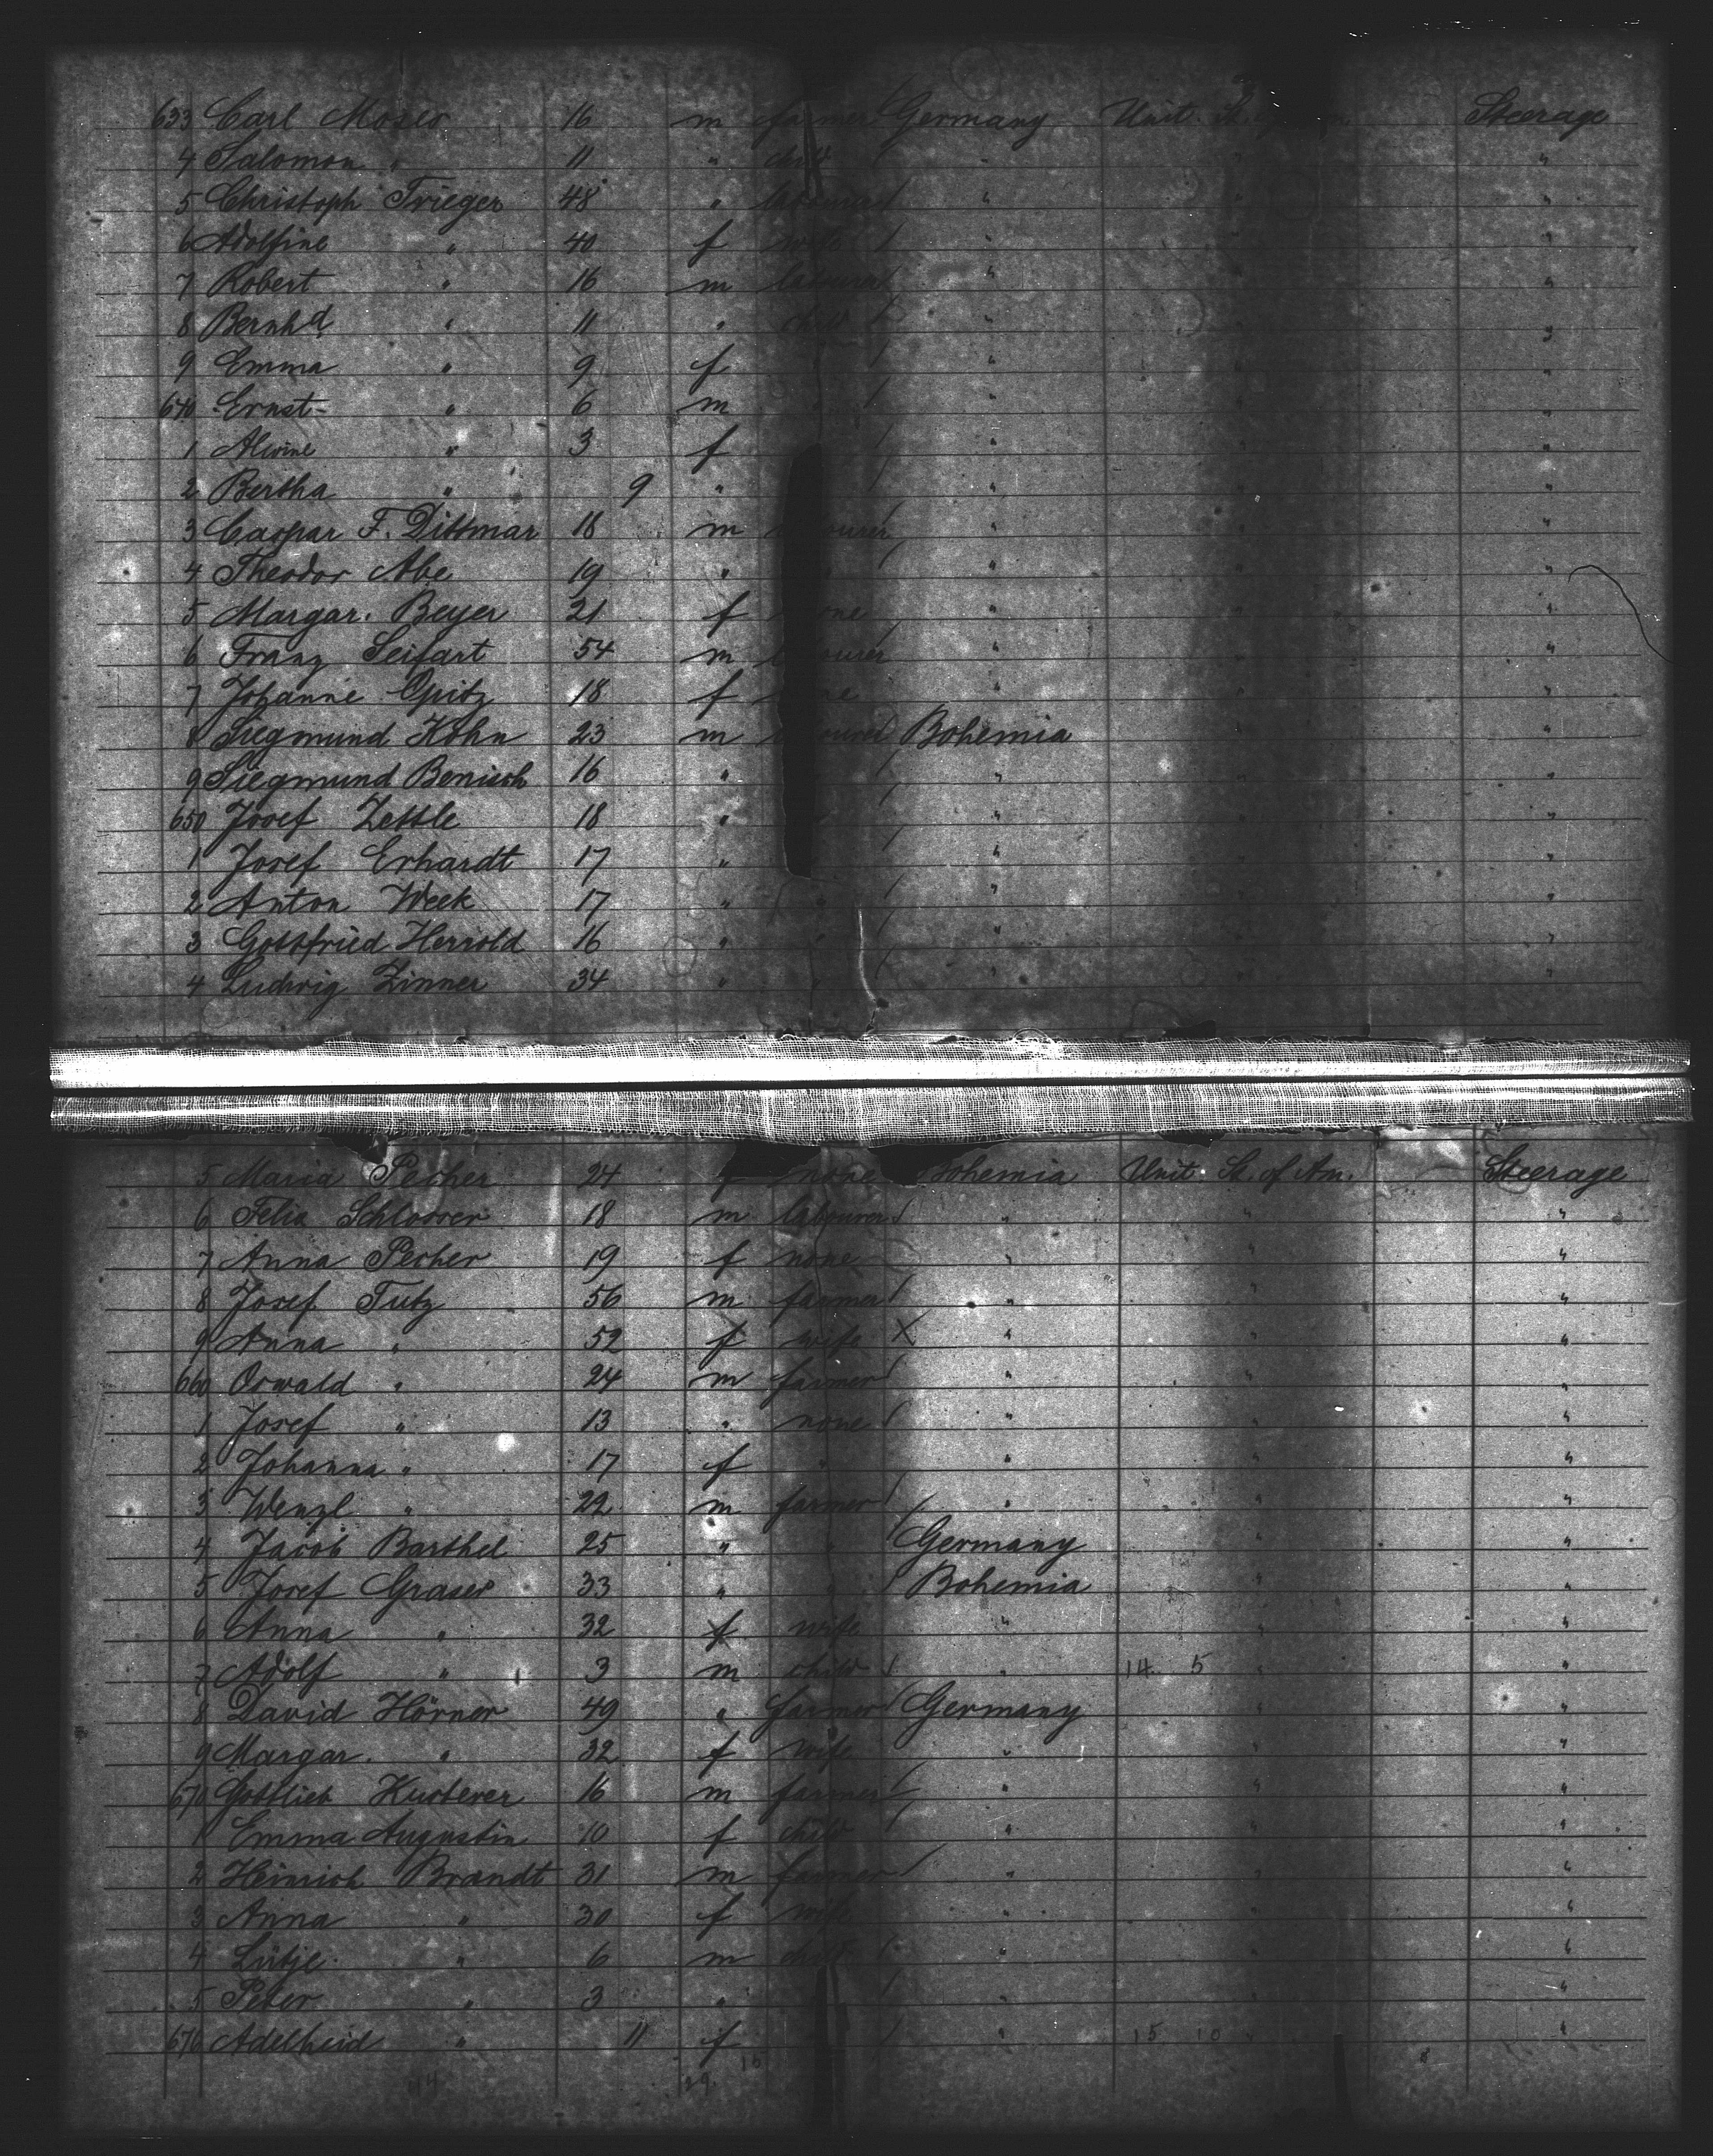 633 Carl Moses 16 m farmer Germany Unit. St. Steerage
4 Salomon " 11 " child " " "
5 Christoph Trieger 48 " labourer " " "
6 Adolfine " 40 f wife " " "
7 Robert " 16 m labourer " " "
8 Bernhd " 11 " child " " "
9 Emma " 9 f " " "
640 Ernst " 6 m " " " "
1 Alwine " 3 f " " "
2 Bertha " 9 " " " "
3 Caspar F. Dittmar 18 m labourer " " "
4 Theodor Abe 19 " " " " "
5 Margar. Beyer 21 f none " " "
6 Franz Seifart 54 m labourer " " "
7 Johanne Opitz 18 f none " " "
8 Siegmund Kohn 23 m labourer Bohemia " "
9 Siegmund Benisch 16 " " " "
650 Josef Zettle 18 " " " "
1 Josef Erhardt 17 " " " "
2 Anton Week 17 " " " " "
3 Gottfried Herrold 16 " " " " "
4 Ludwig Zinner 34 " " " " "
5 Maria Pecher 24 f none Bohemia Unit. St. of Am. Steerage
6 Felix Schlosser 18 m labourer " " "
7 Anna Pecher 19 f none " " "
8 Josef Tutz 56 m farmer " " "
9 Anna " 52 f wife X " " "
660 Oswald " 24 m farmer " " "
1 Josef " 13 " none " " "
2 Johanna " 17 f " " " "
3 Wenzl " 22 m farmer " " "
4 Jacob Barthel 25 " " Germany " "
5 Josef Graser 33 " " Bohemia " "
6 Anna " 32 f wife " " "
7 Adolf " 3 m child " 14 5 " "
8 David Hörner 49 " farmer Germany " "
9 Margar. " 32 f wife " " "
670 Gottlieb Kusterer 16 m farmer " " "
1 Emma Augustin 10 f child " " "
2 Heinrich Brandt 31 m farmer " " "
3 Anna " 30 f wife " " "
4 Lütje " 6 m child " " "
5 Peter " 3 " " " "
676 Adelheid " 11 f " 15 10 " "
44 29 10